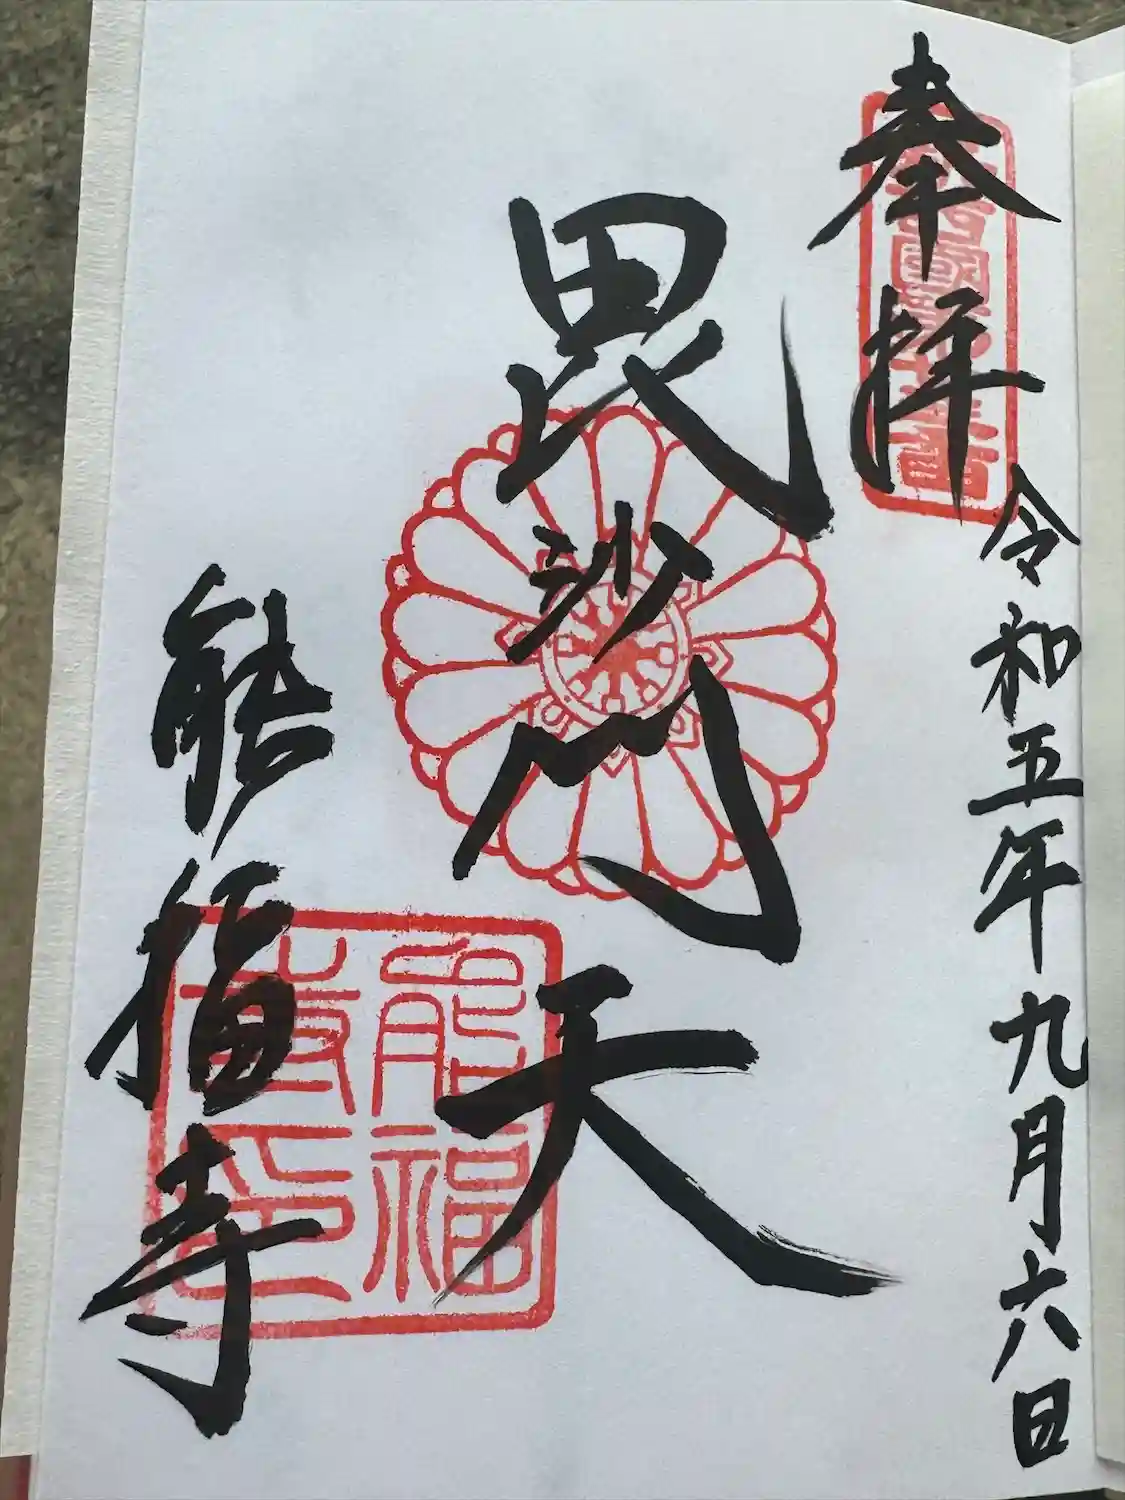 奉拝
令和五年九月六日
毘沙門天
能福寺
能福
寺印